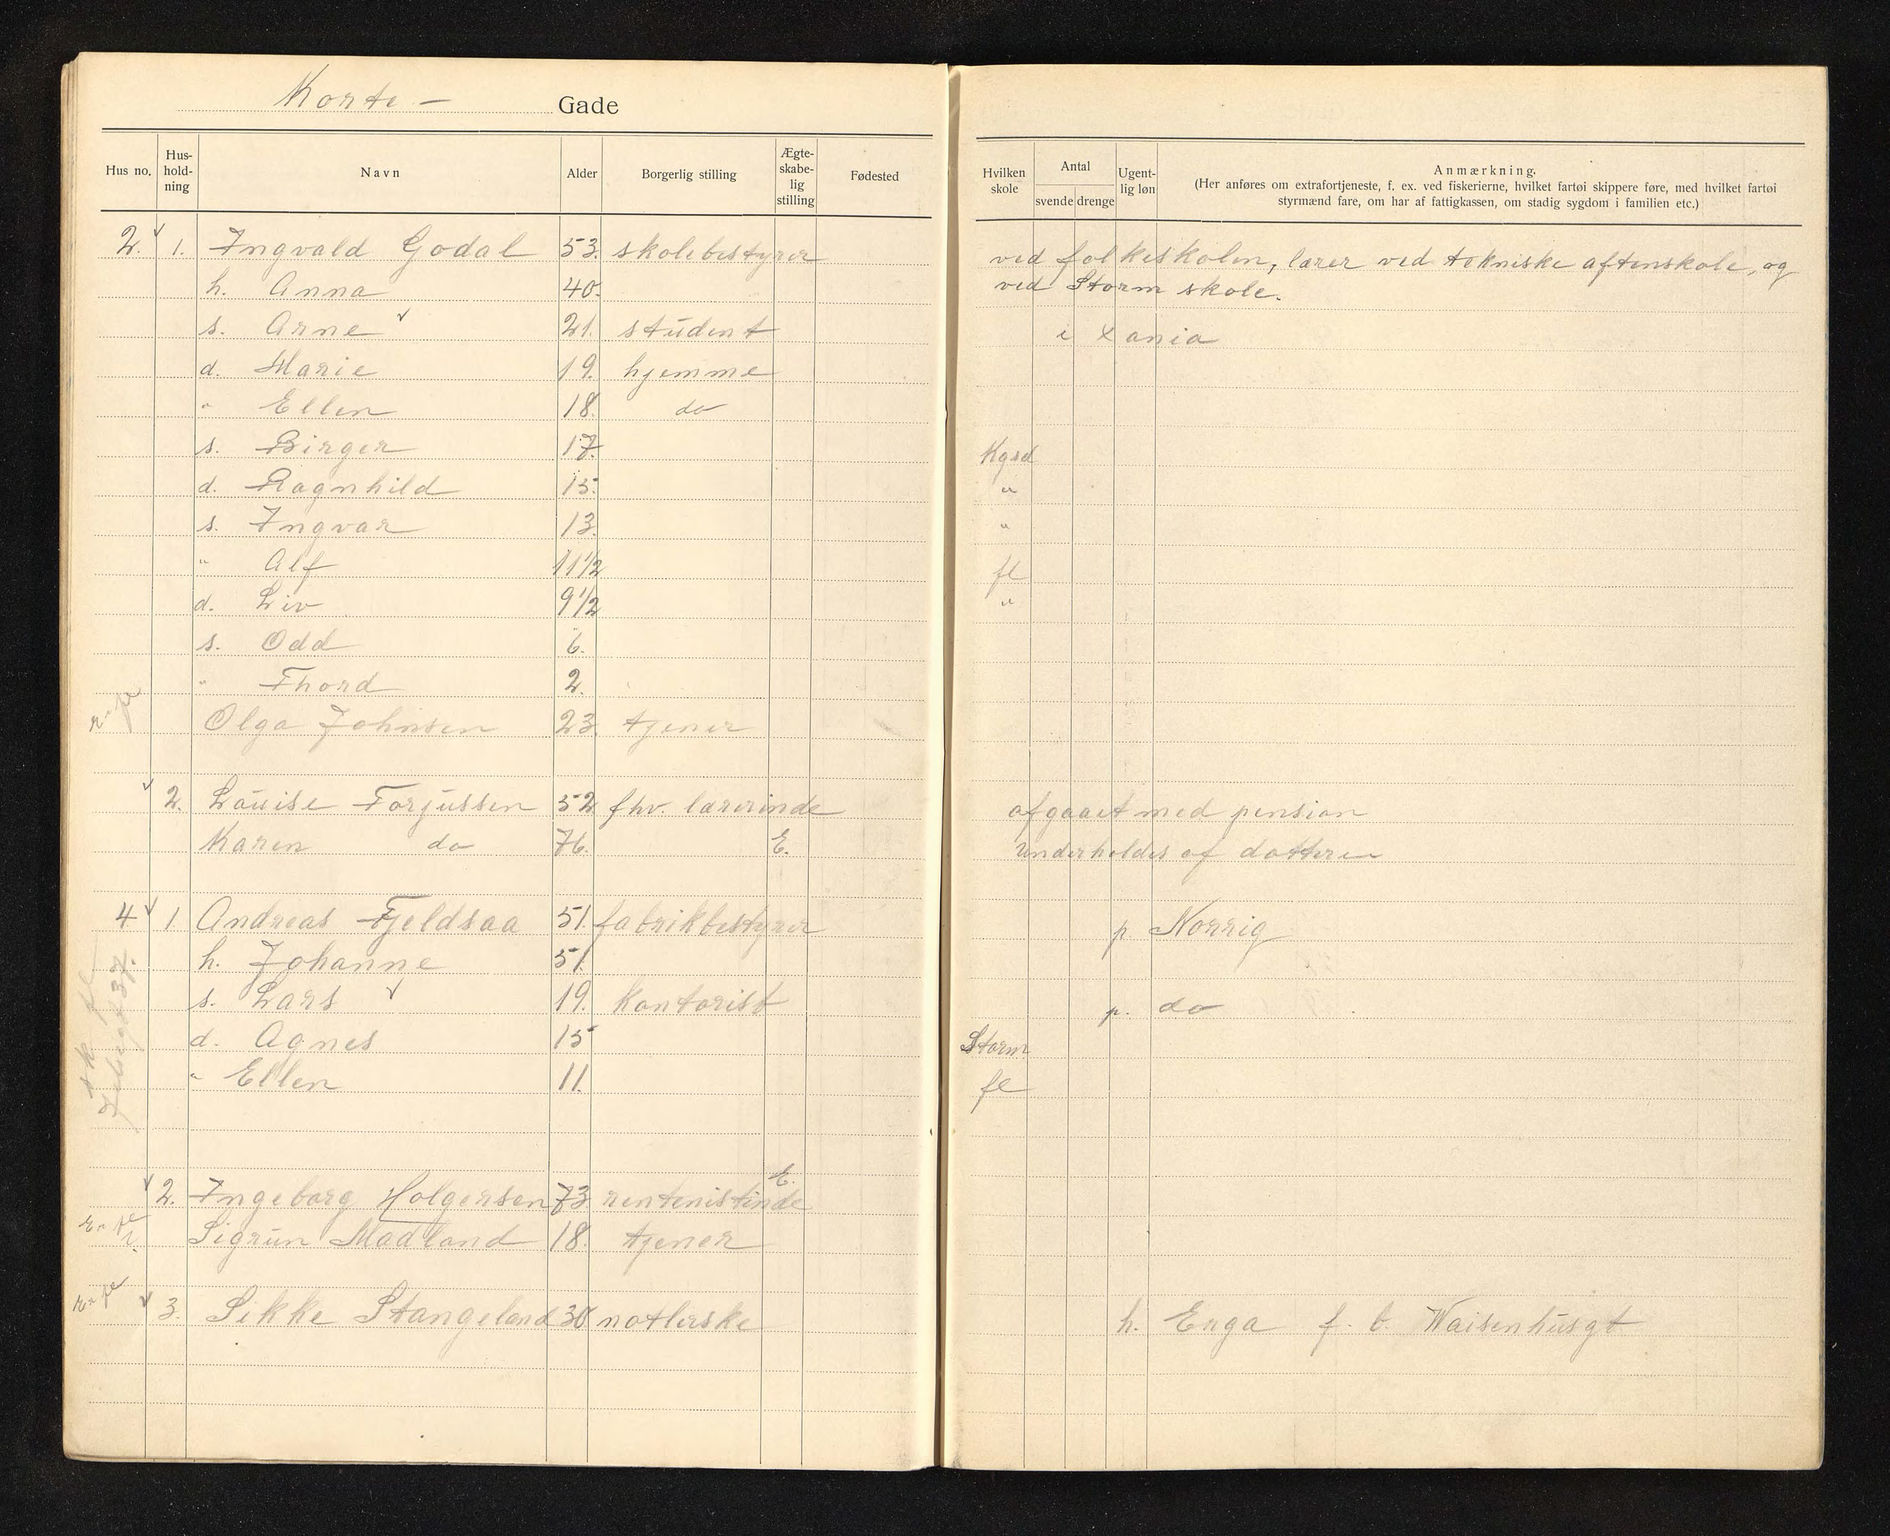 Korte - Gade
Hus no. Hus-hold-ning Navn Alder Borgerlig stilling Ægte-skabe-lig stilling Fødested
Hvilken skole Antal svende drenge Ugent-lig løn Anmærkning.
(Her anføres om extrafortjeneste, f. ex. ved fiskerierne, hvilket fartøi skippere føre, med hvilket fartøi
styrmænd fare, om har af fattigkassen, om stadig sygdom i familien etc.)
2. 1. Ingvald Godal 53. skolebestyrer ved folkeskolen, lærer ved tekniske aftenskole, og
h. Anna 40. ved Storm skole.
s. Arne 21. student i Xania
d. Marie 19. hjemme
" Ellen 18. do
s. Birger 17. Kgsd
d. Ragnhild 15. "
s. Ingvar 13. "
" Alf 11 1/2 fl
d. Liv 9 1/2 "
s. Odd 6.
" Thord 2.
Olga Johnsen 23. tjener
2. Louise Torjussen 52 fhv. lærerinde afgaaet med pension
Karen do 76. E. underholdes af datteren
4 1 Andreas Fjeldsaa 51. fabrikbestyrer p. Norrig
h. Johanne 51.
s. Lars 19. kontorist p. do
d. Agnes 15 Storm
" Ellen 11. fl
2. Ingeborg Holgersen 73. rentenistinde E.
Sigrun Madland 18. tjener
3. Sikke Stangeland 30 notlerske h. Enga f. b. Waisenhusgt